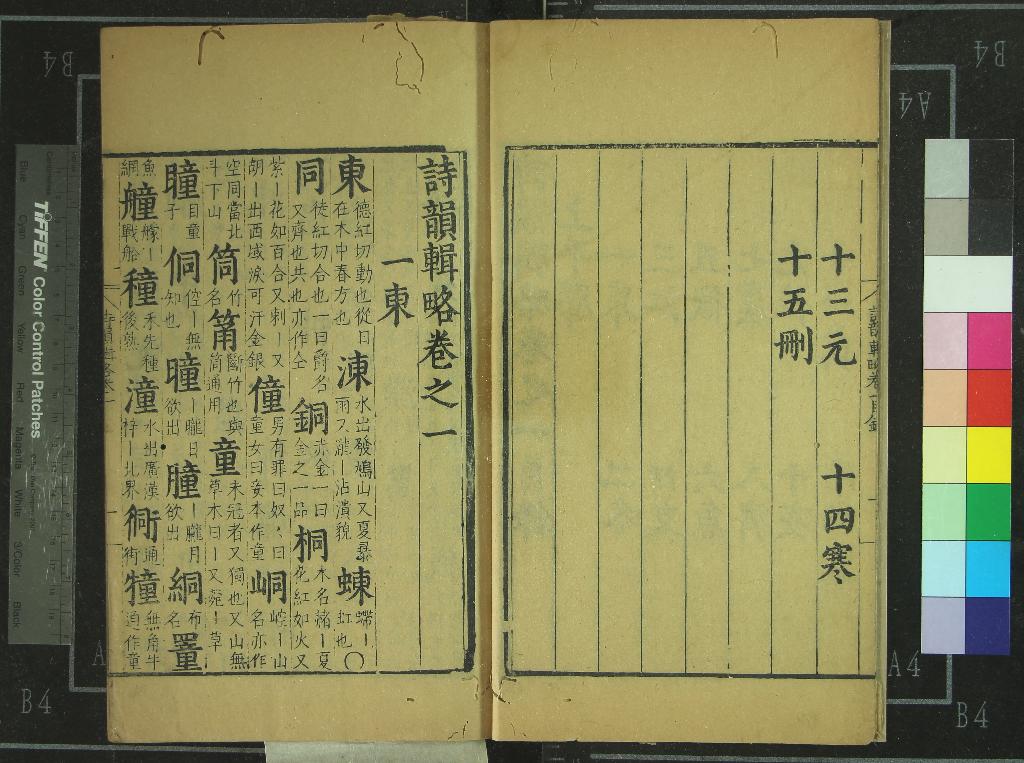 十三元 十四寒
十五刪
詩韻輯略卷之一
一東
東 德紅切動也從日在木中春方也 涷 水出發鳩山又夏暴雨又瀧丨沾漬貌 蝀 螮丨虹也 〇
同 徒紅切合也一曰爵名又齊也共也亦作仝 銅 赤金一曰金之一品 桐 木名 丨夏花紅如火又
紫丨花如百合又刺丨又胡丨出西域淚可汗金銀 僮 男有罪曰奴奴曰童女曰妾本作童 峒 崆丨山名亦作
空同當北斗下山 筒 竹名 筩 斷竹也與筒通用 童 未冠者又獨也又山無草木曰丨又 丨草
瞳 目童子 侗 倥丨無知也 曈 丨曨日欲出 朣 丨朧月欲出 絧 布名 罿
魚網 艟 艨丨戰船 穜 禾先種後熟 潼 水出廣漢梓丨北界 衕 通街 犝 無角牛通作童
TIFFEN Color Control Patches
Blue Cyan Green Yellow Red Magenta White 3/Color Black
B4
A4
B4
A4
B4
A4
B4